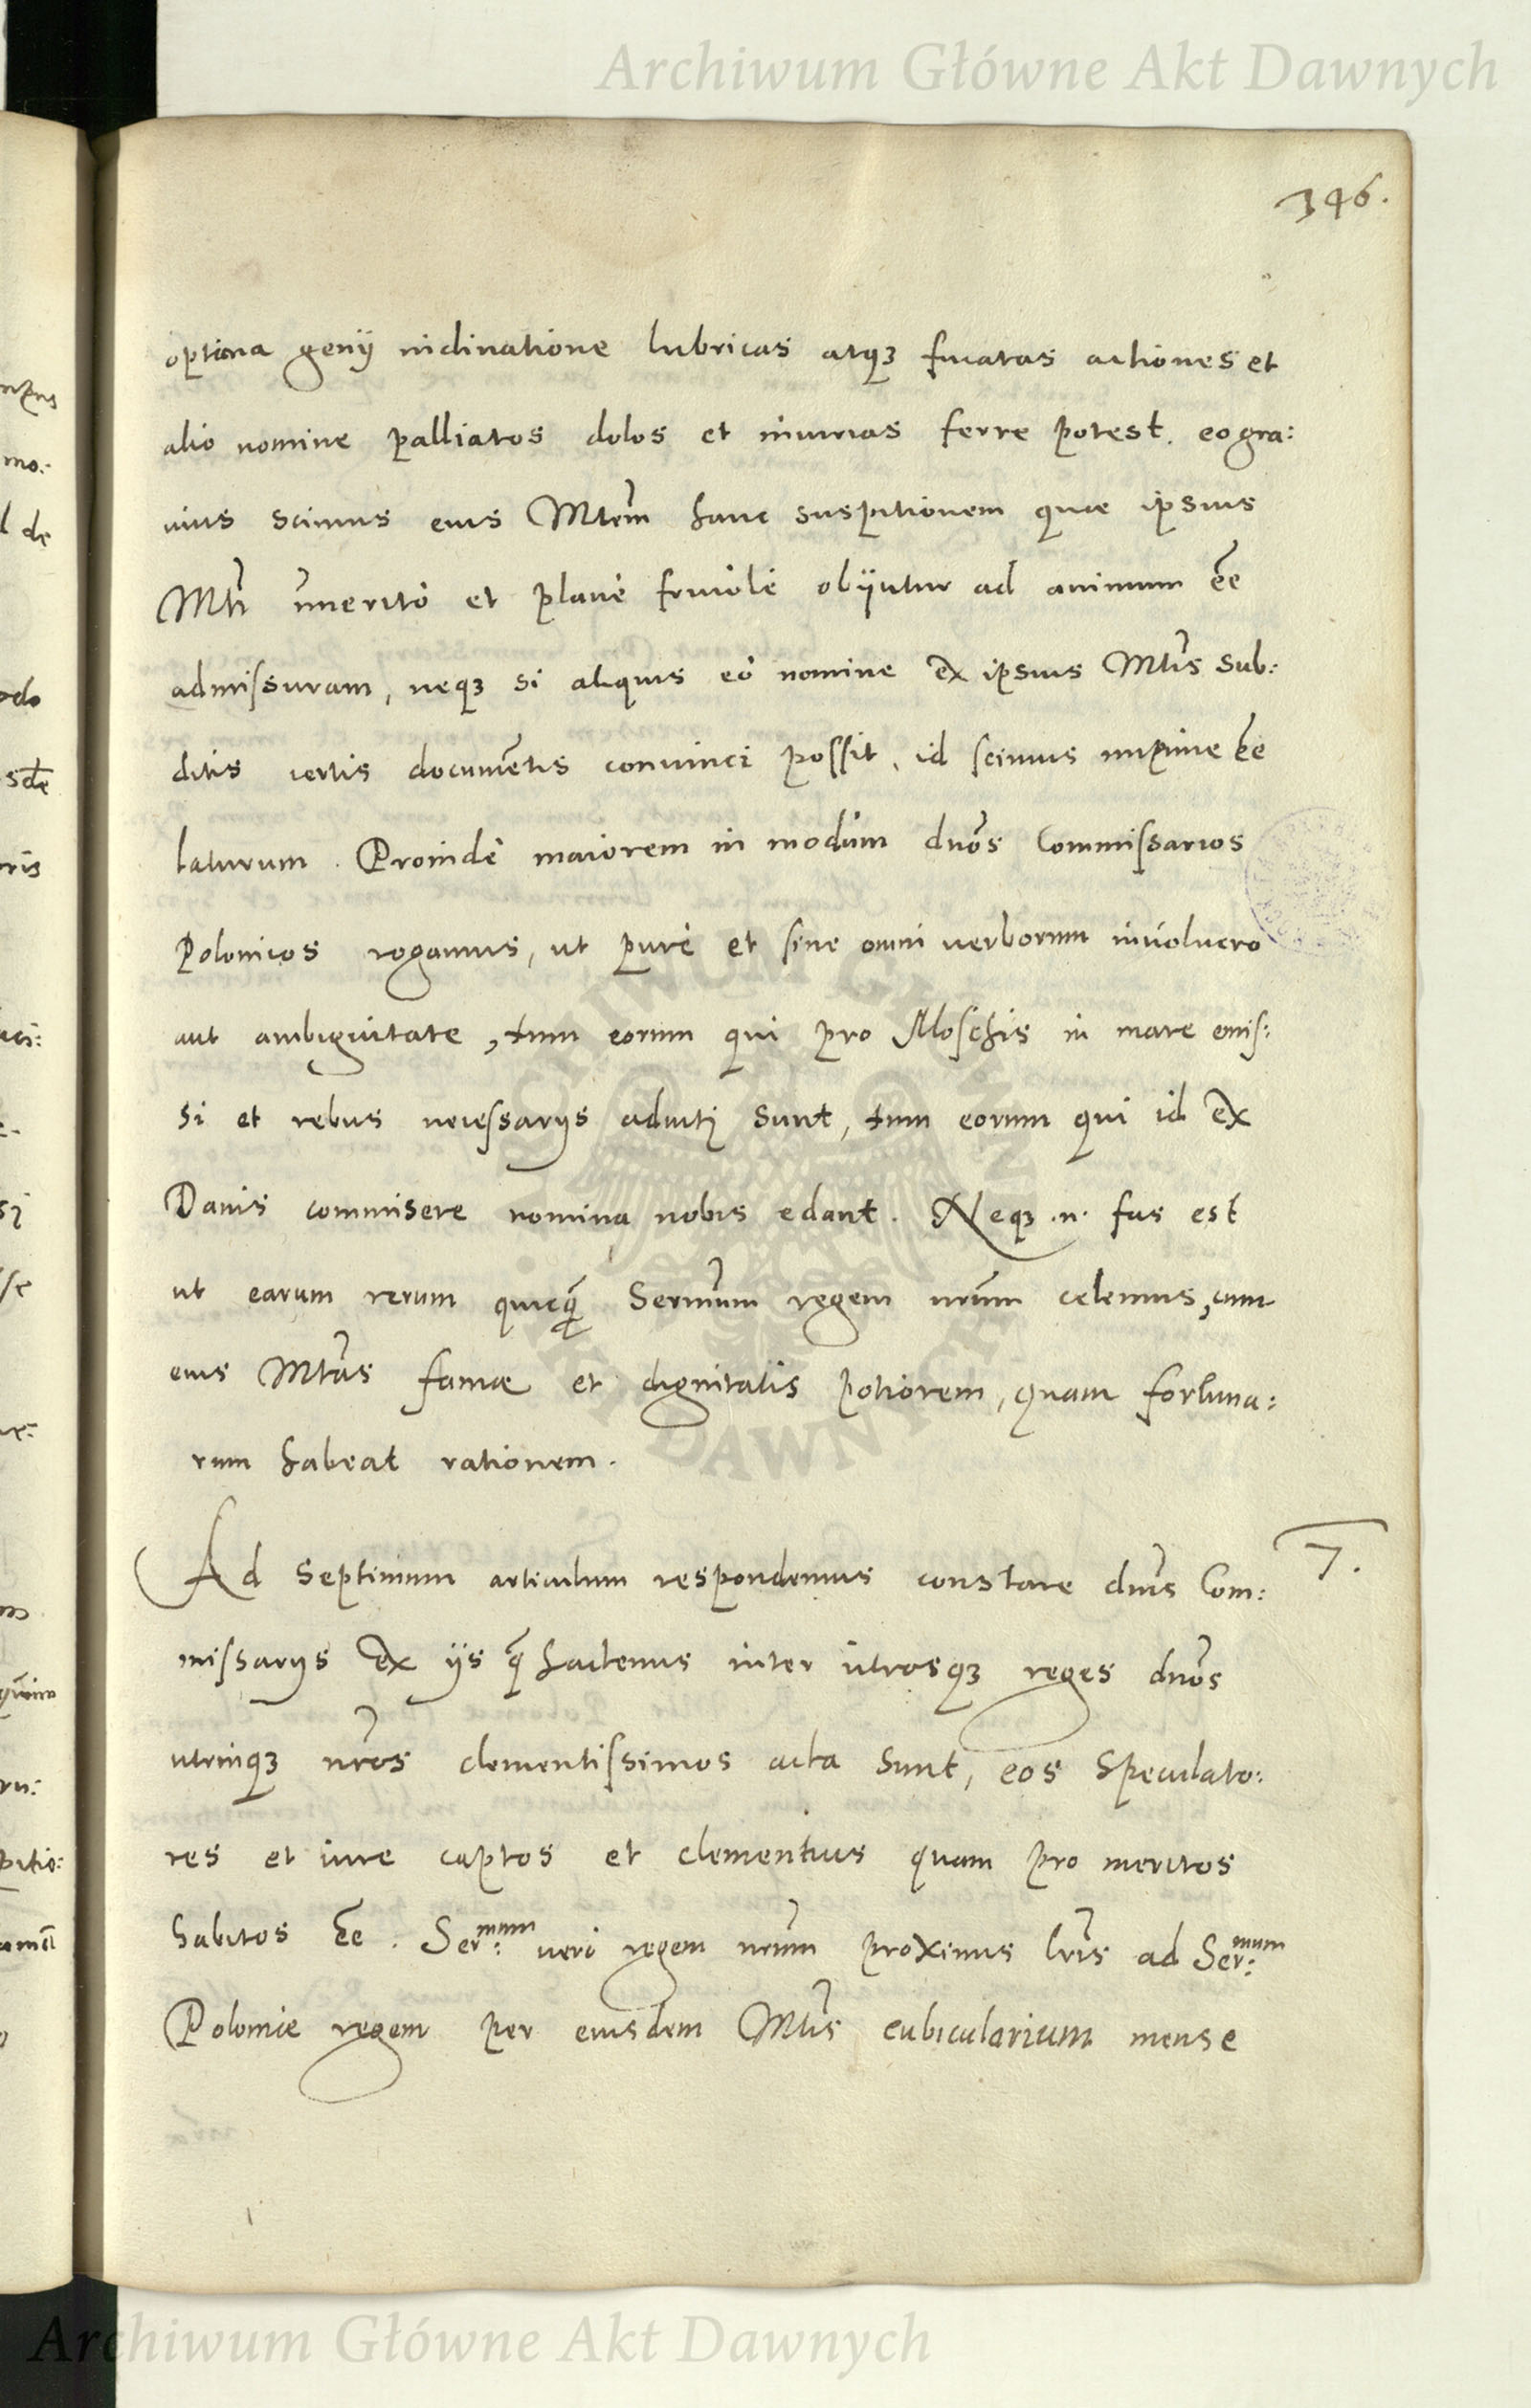 Archiwum Główne Akt Dawnych
346.
optima genij inclinatione lubricas atq3 fucatas actiones et
alio nomine palliatos dolos et iniurias ferre potest. eo gra:
uius scimus eius Mtem hanc suspitionem quae ipsius
Mti immerito et plane friuole obijcitur ad animum ee
admissuram, neq3 si aliquis eo nomine ex ipsius Mtis sub:
ditis certis documetis conuinci possit, id scimus impune ee
laturum. Proinde maiorem in modum dnos Commissarios
Polonicos rogamus, ut pure et sine omni verborum inuolucro
aut ambiguitate, tum eorum qui pro Moschis in mare emis:
si et rebus necessarijs adiuti sunt, tum eorum qui id ex
Danis commisere nomina nobis edant. Neq3 .n. fas est
ut earum rerum quicq Sermum regem nrum celemus, cum
eius Mtas famae et dignitatis potiorem, quam fortuna:
rum habeat rationem.
Ad septimum articulum respondemus constare dnis Com:
7.
missarijs ex ijs q hactenus inter utrosq3 reges dnos
utrinq3 nros clementissimos acta sunt, eos speculato:
res et iure captos et clementius quam pro meritos
habitos ee. Ser:mum vero regem nrum proximis lris ad Ser:mum
Polonie regem per eiusdem Mtis cubicularium mense
Archiwum Główne Akt Dawnych